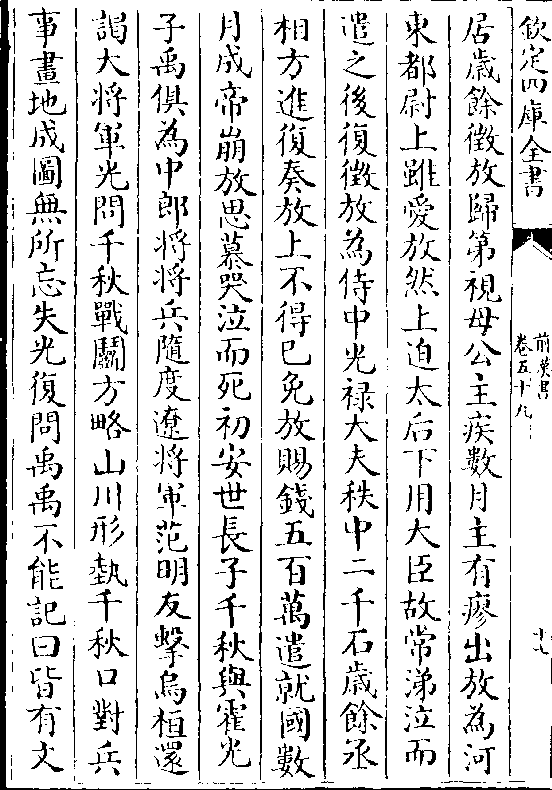 欽定四庫全書
前漢書
卷五十九
十七
居歲餘徵放歸第視母公主疾數月主有瘳出放為河
東都尉上雖愛放然上迫太后下用大臣故常涕泣而
遣之後復徵放為侍中光禄大夫秩中二千石歲餘丞
相方進復奏放上不得已免放賜錢五百萬遣就國數
月成帝崩放思慕哭泣而死初安世長子千秋與霍光
子禹俱為中郎将将兵隨度遼将軍范明友擊烏桓還
謁大将軍光問千秋戰鬭方略山川形埶千秋口對兵
事畫地成圖無所忘失光復問禹禹不能記曰皆有文